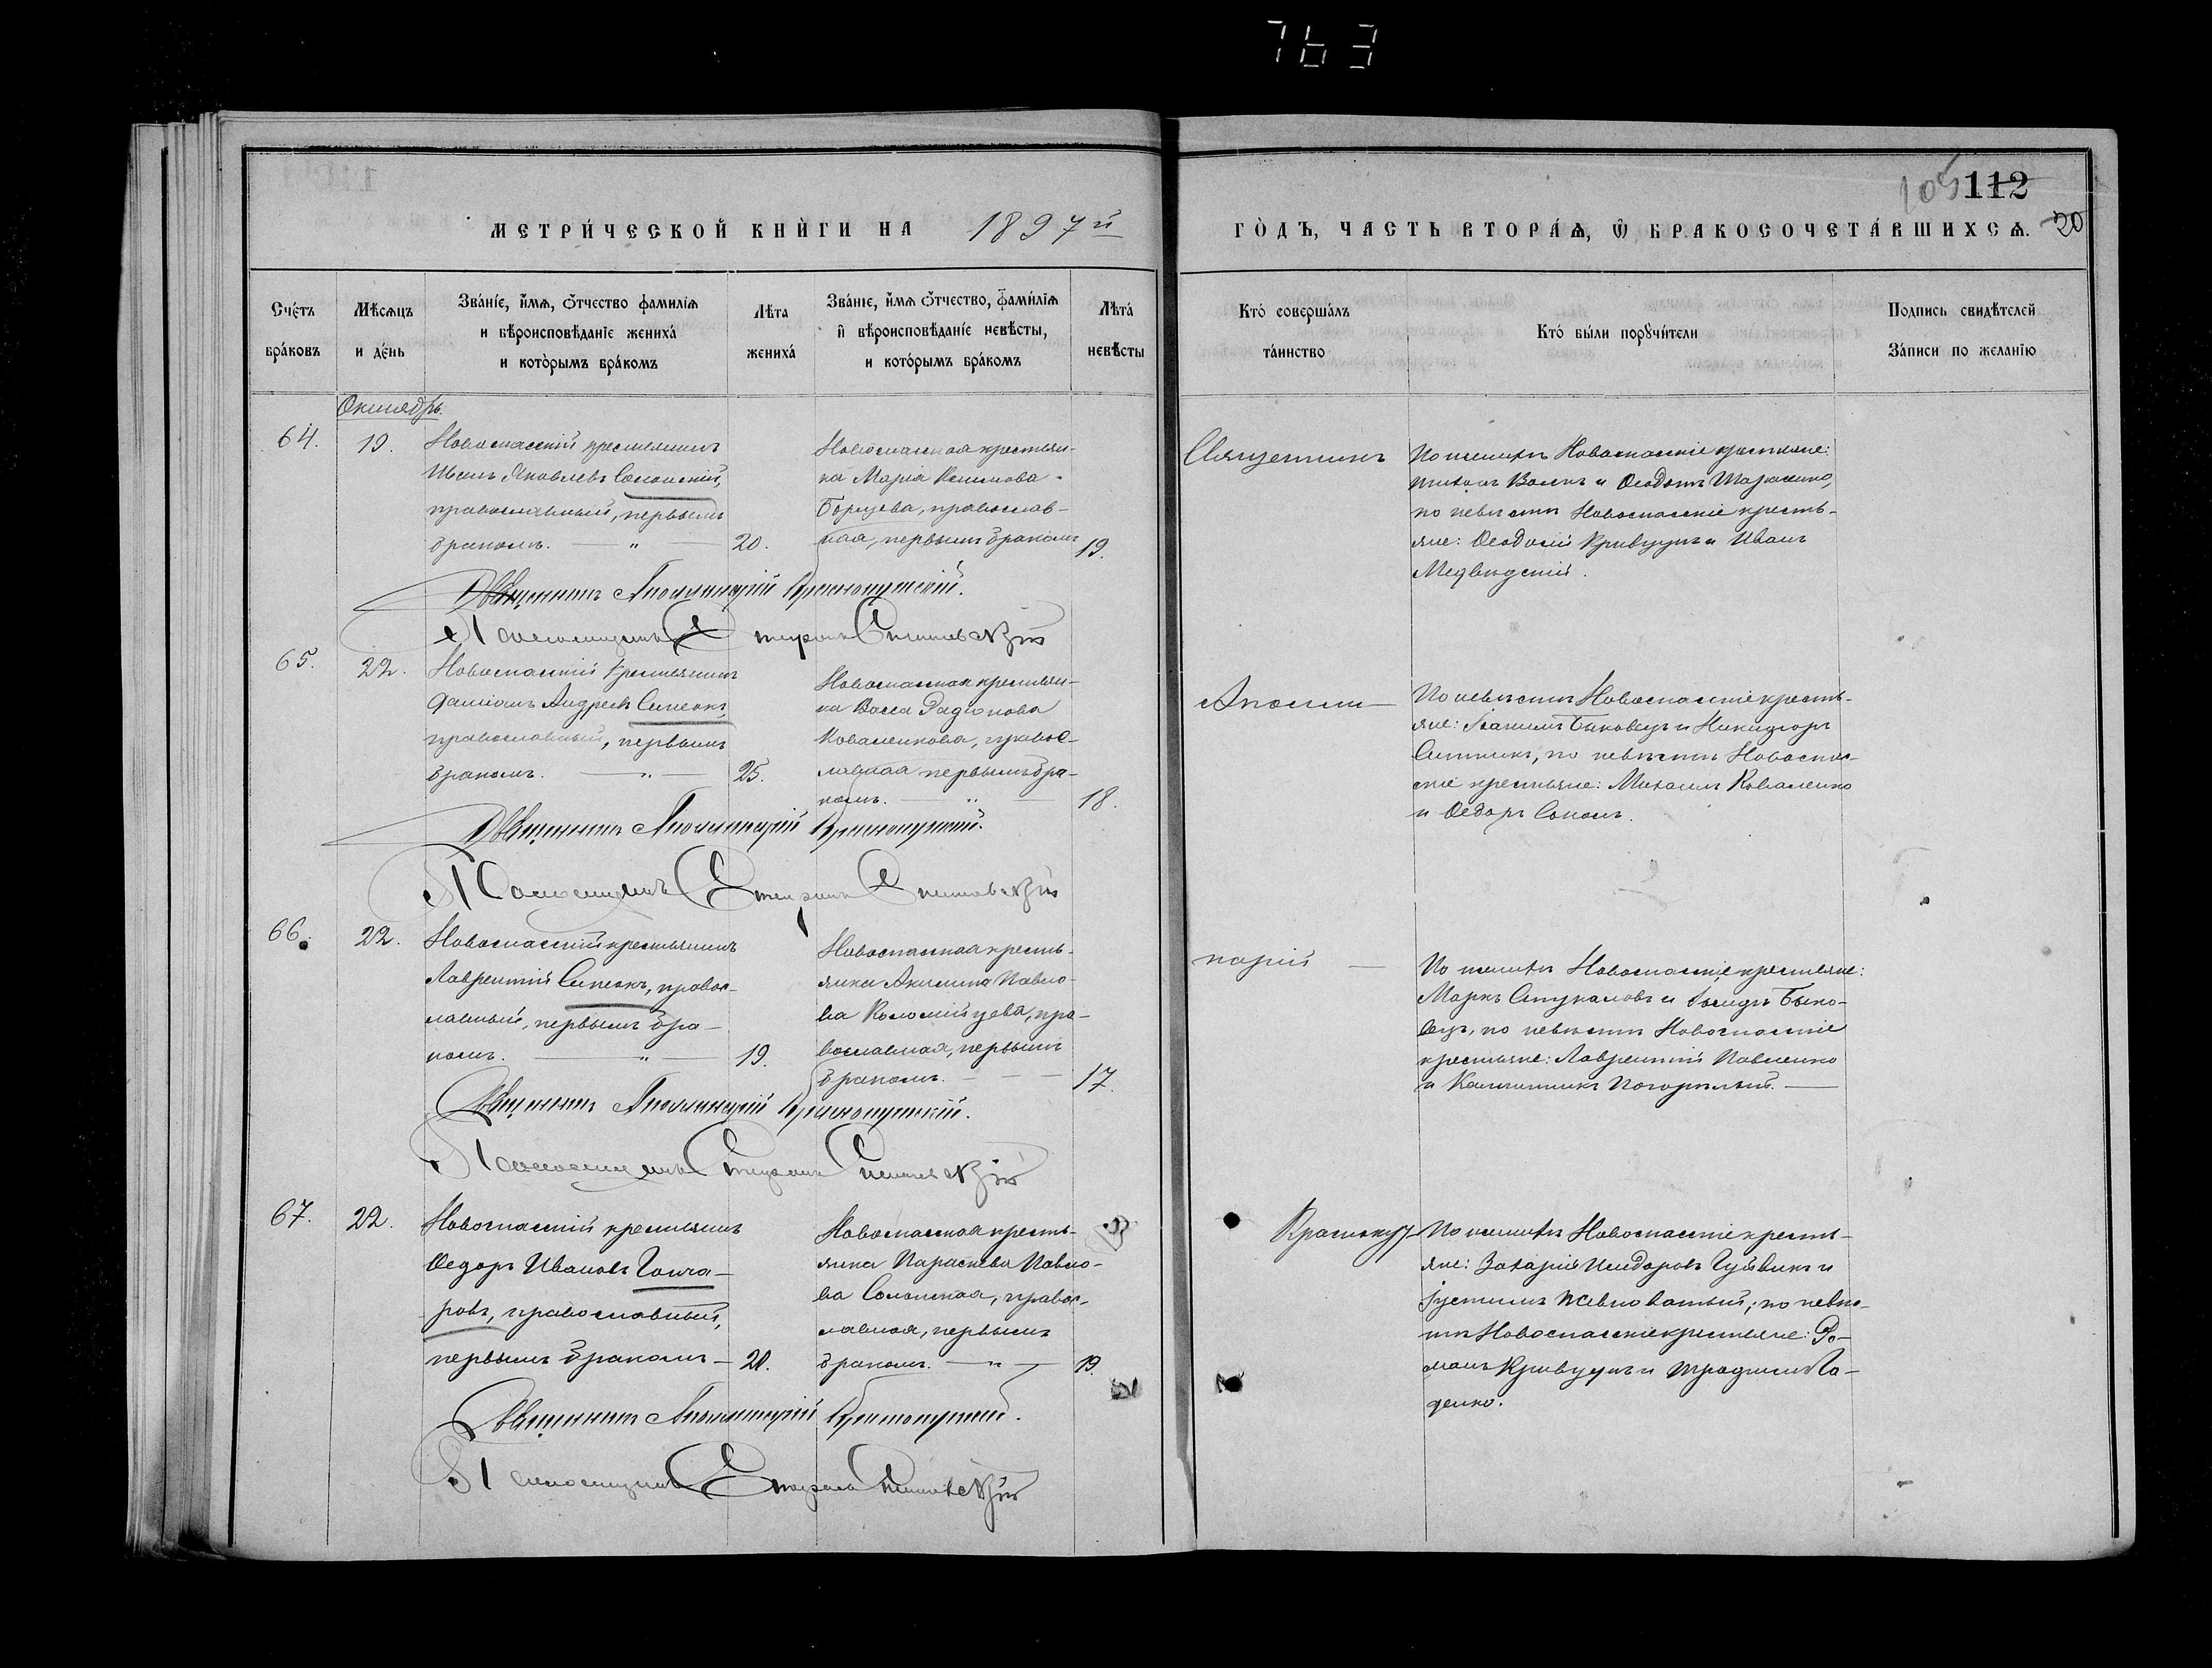 763
105 112
20
МЕТРИ́ЧЕСКОЙ КНИ́ГИ НА 1897 й
ГО́ДЪ, ЧАСТЬ ВТОРА́Ѧ, Ѡ БРАКОСОЧЕТА́ВШИХСѦ.
Сче́тъ
бра́ковъ
Мѣсѧцъ
и де́нь
Зва́нїе, и́мѧ, ѻ́тчество фамилїѧ
и вѣроисповѣданїе жениха́
и кото́рымъ бра́комъ
Лѣта
жениха́
Зва́нїе, и́мѧ ѻ́тчество, фами́лїѧ
и вѣроисповѣданїе невѣсты,
и кото́рымъ бра́комъ
Лѣта́
невѣсты
Кто́ соверша́лъ
та́инство
Кто́ бы́ли порꙋчи́тели
Подпись свидѣтелей
За́писи по желанїю
Октябрь.
64.
19.
Новоспасскій крестьянинъ
Иванъ Яковлевъ Солонскій,
православный, первымъ
бракомъ. — „ — 20.
Новоспасская крестьян-
ка Марія
православ-
ная, первымъ бракомъ 19.
Священникъ
По женихѣ Новоспасскіе крестьяне:
Тихонъ Волкъ и Ѳеодотъ
по невѣстѣ Новоспасскіе кресть-
яне: Ѳеодосій Кривуцъ и Иванъ
Медвѣдскій.
Священникъ Аполлинарій Краснокутскій.
Псаломщикъ
65.
22.
Новоспасскій крестьянинъ
Даміанъ Андреевъ Синеокъ,
православный, первымъ
бракомъ. — „ — 25.
Новоспасская крестьян-
ка Васса Радіонова
Коваленкова, правос-
лавная первымъ бра-
комъ. — „ — 18.
Аполли—
По невѣстѣ Новоспасскіе кресть-
яне: Быковецъ и Никифоръ
по невѣстѣ Новоспас-
скіе крестьяне: Михаилъ Коваленко
и Ѳедоръ Соколъ.
Священникъ Аполлинарій Краснокутскій.
Псаломщикъ
66.
22.
Новоспасскій крестьянинъ
Лаврентій Синеокъ, правос-
лавный, первымъ бра-
комъ. — „ — 19.
Новоспасская кресть-
янка Акилина Павло-
ва Коломійцева, пра-
вославная, первымъ
бракомъ. — — 17.
нарій —
По женихѣ Новоспасскіе крестьяне:
Маркъ Стукаловъ и Быко-
вецъ, по невѣстѣ Новоспасскіе
крестьяне: Лаврентій Павленко
и Каллиникъ Погорѣлый. —
Священникъ Аполлинарій Краснокутскій.
Псаломщикъ
67.
22.
Новоспасскій крестьянинъ
Ѳедоръ Ивановъ Гонча-
ровъ, православный,
первымъ бракомъ — 20.
Новоспасская кресть-
янка Параскева Павло-
ва Солонская, правос-
лавная, первымъ
бракомъ. — „ — 19.
Краснокут-
По женихѣ Новоспасскіе кресть-
яне: Захарій Исидоровъ и
Іустинъ по невѣс-
тѣ Новоспасскіе крестьяне: Ро-
манъ Кривуцъ и Трофимъ Га-
денко.
Священникъ Аполлинарій Краснокутскій.
Псаломщикъ